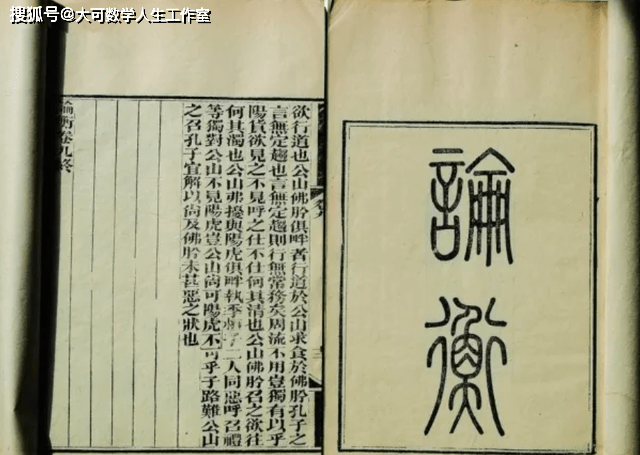 搜狐号@大可数学人生工作室
論衡
欲行道也公山佛肸俱畔者行道於公山求食於佛肸孔子之
言無定趨也言無定趨則行無常務矣周流不用豈獨有以乎
陽貨欲見之不見呼之仕不仕何其清也公山佛肸召之欲往
何其濁也公山弗擾與陽虎俱畔執季子二人同惡呼召禮
等獨對公山不見陽虎豈公山尚可陽虎不可乎子路難公山
之召孔子宜解以尚及佛肸未甚惡之狀也
論衡卷九終